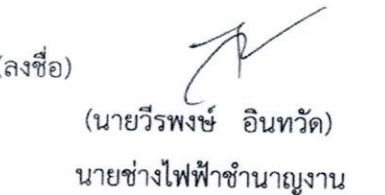 (ลงชื่อ)
(นายวีรพงษ์ อินทวัด)
นายช่างไฟฟ้าชำนาญงาน